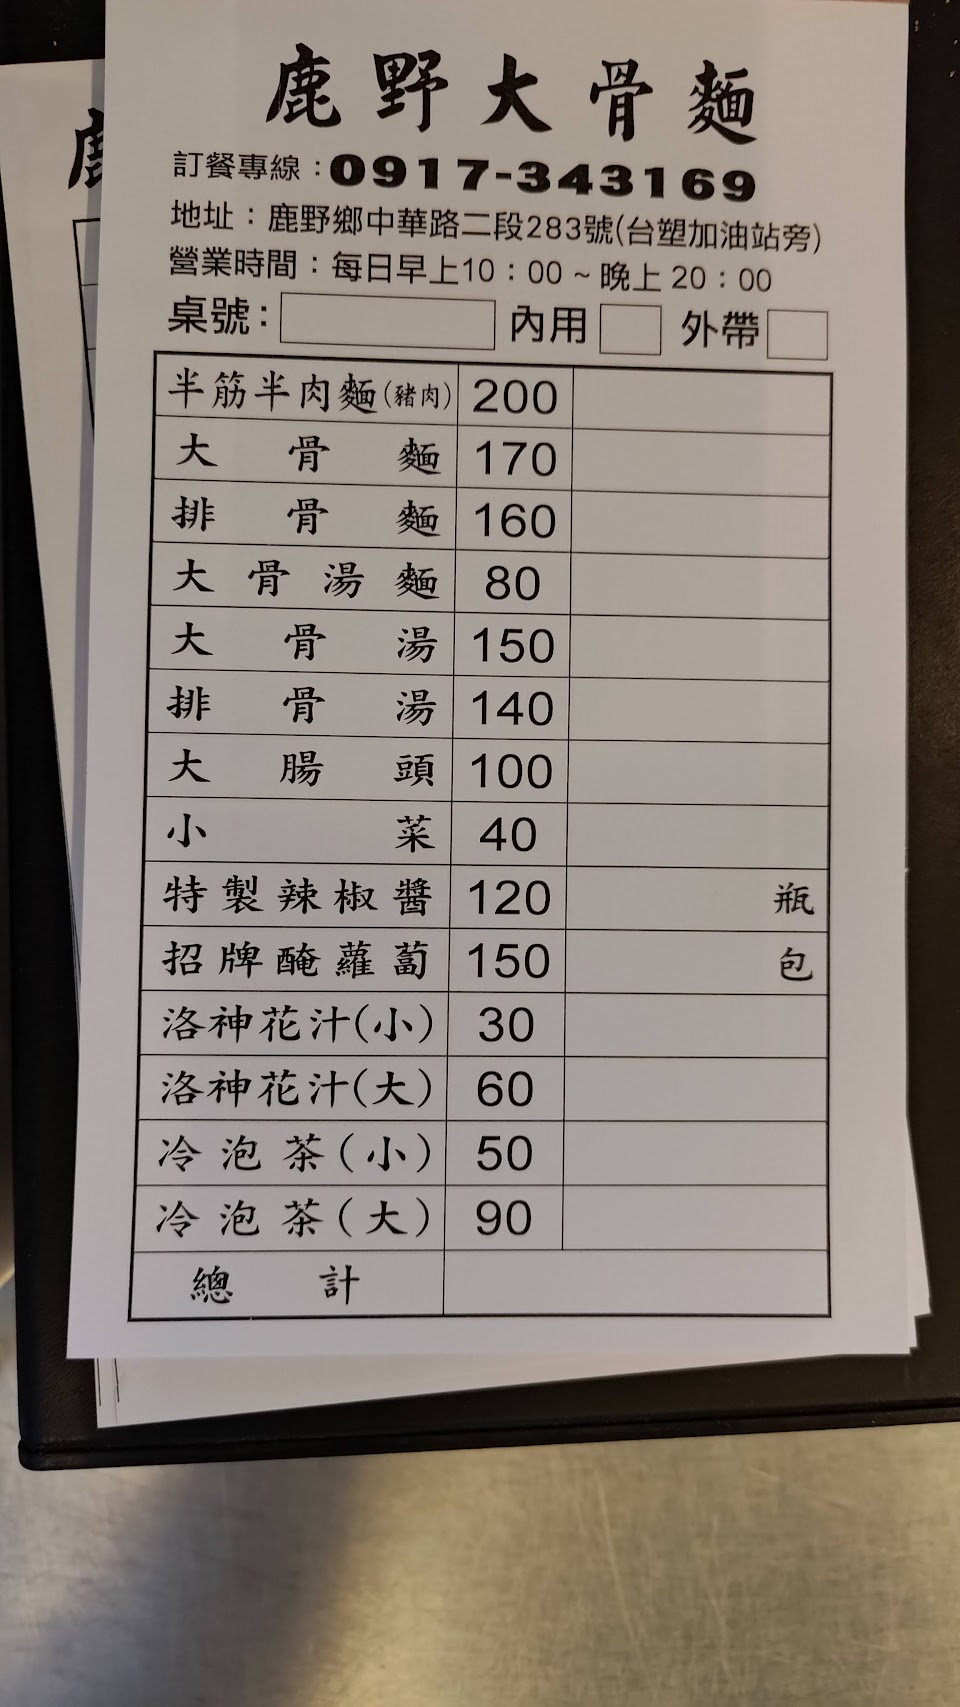 鹿野大骨麵
訂餐專線：0917-343169
地址：鹿野鄉中華路二段283號(台塑加油站旁)
營業時間：每日早上10：00 ~ 晚上 20：00
桌號： 內用 外帶
半筋半肉麵(豬肉) 200
大骨麵 170
排骨麵 160
大骨湯麵 80
大骨湯 150
排骨湯 140
大腸頭 100
小菜 40
特製辣椒醬 120 瓶
招牌醃蘿蔔 150 包
洛神花汁(小) 30
洛神花汁(大) 60
冷泡茶(小) 50
冷泡茶(大) 90
總計